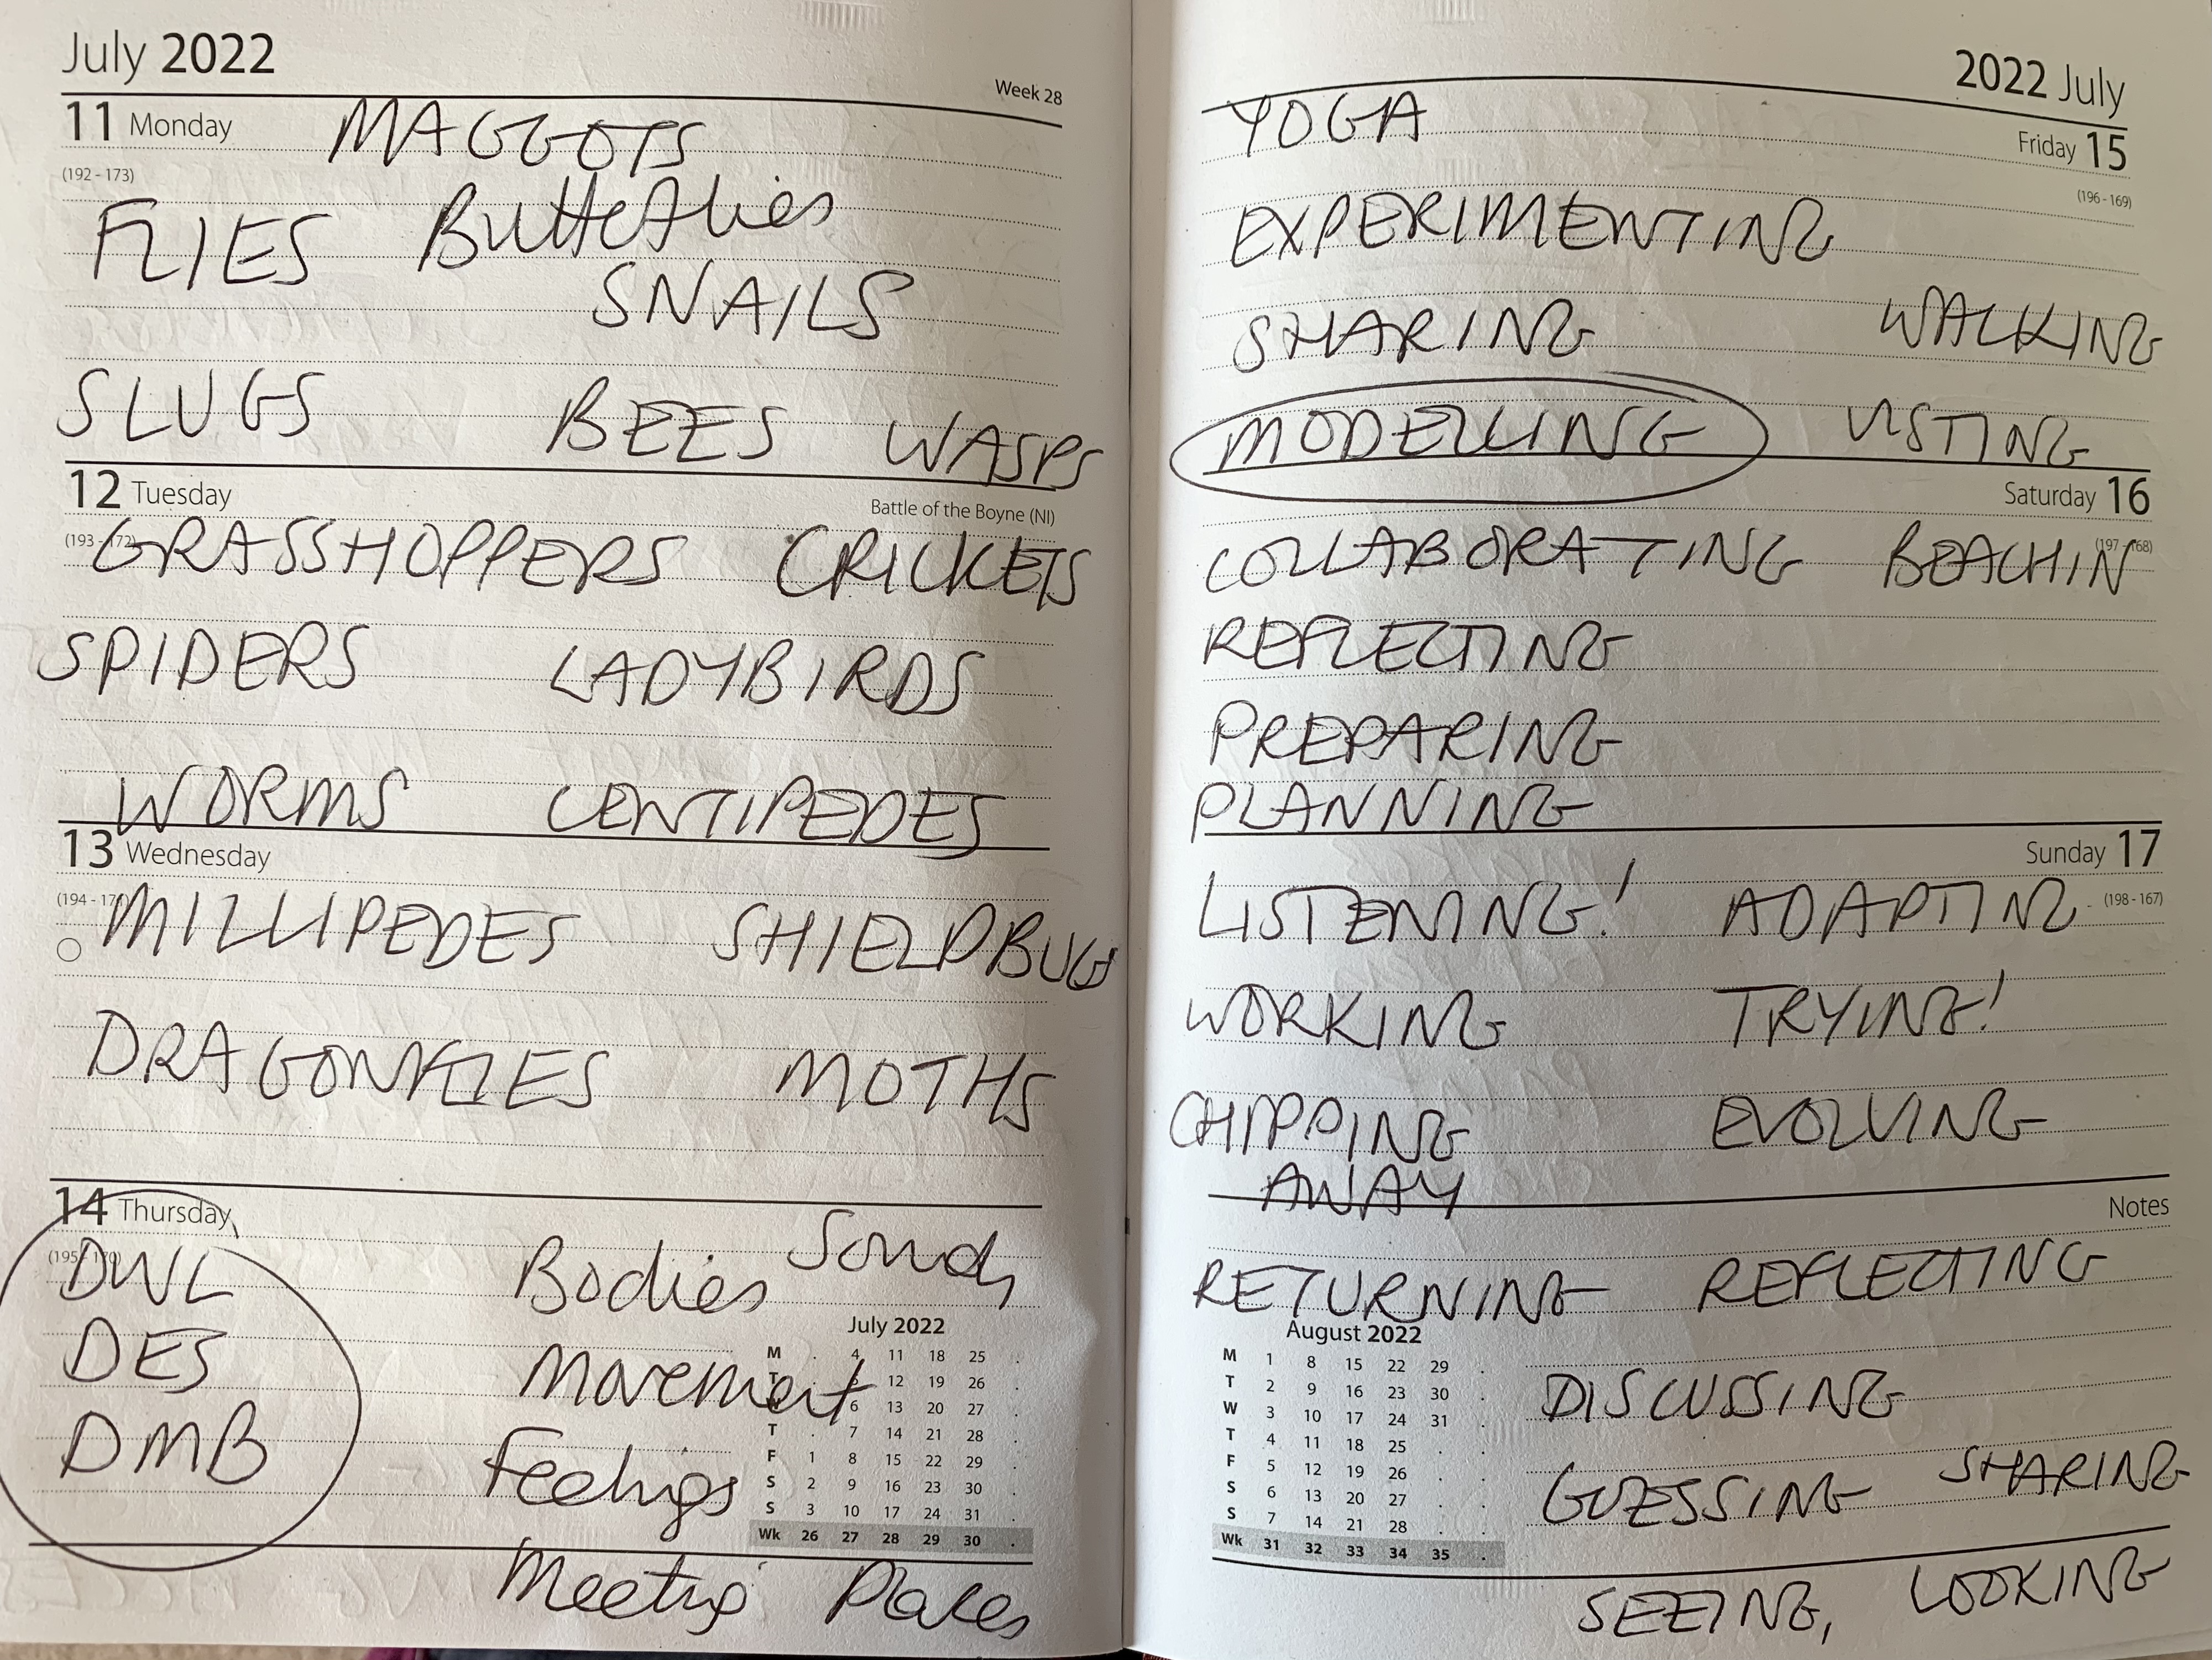 July 2022
Week 28
11 Monday MAGGOTS
(192 - 173)
FLIES Butterflies
SNAILS
SLUGS BEES WASPS
12 Tuesday
Battle of the Boyne (NI)
(193 - 172)
GRASSHOPPERS CRICKETS
SPIDERS LADYBIRDS
WORMS CENTIPEDES
13 Wednesday
(194 - 171)
MILLIPEDES SHIELDBUGS
DRAGONFLIES MOTHS
14 Thursday
(195 - 170)
DWL Bodies Sounds
DES Movement
DMB Feelings
July 2022
M . 4 11 18 25 .
T 12 19 26 .
6 13 20 27 .
T . 7 14 21 28 .
F 1 8 15 22 29 .
S 2 9 16 23 30 .
S 3 10 17 24 31 .
Wk 26 27 28 29 30 .
Meeting Places
2022 July
YOGA
Friday 15
(196 - 169)
EXPERIMENTING
SHARING WALKING
MODELLING VISTING
Saturday 16
(197 - 168)
COLLABORATING BEACHIN
REFLECTING
PREPARING
PLANNING
Sunday 17
(198 - 167)
LISTENING! ADAPTING
WORKING TRYING!
CHIPPING EVOLVING
AWAY
Notes
RETURNING REFLECTING
August 2022
M 1 8 15 22 29 .
T 2 9 16 23 30 .
W 3 10 17 24 31 .
T 4 11 18 25 . .
F 5 12 19 26 . .
S 6 13 20 27 . .
S 7 14 21 28 . .
Wk 31 32 33 34 35 .
DISCUSSING
GUESSING SHARING
SEEING, LOOKING